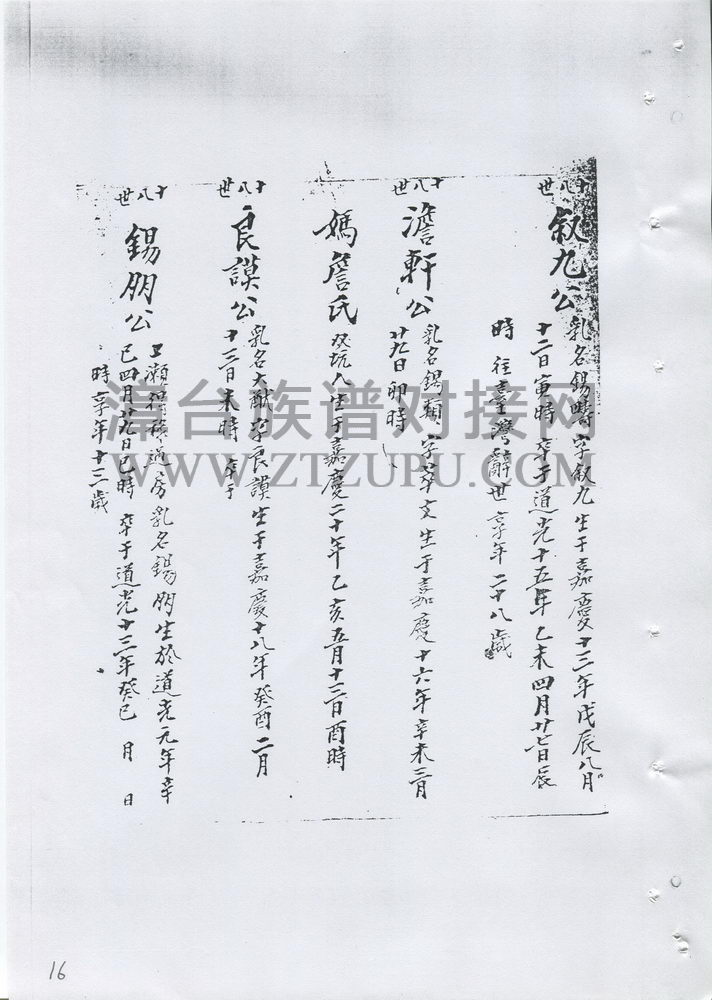 十八世
敘九公 乳名錫疇字敘九生于嘉慶十三年戊辰八月
十二日寅時 卒于道光十五年乙未四月廿七日辰
時 往臺灣辭世享年二十八歲
十八世
澹軒公 乳名錫類 字萃文生于嘉慶十六年辛未三月
廿九日卯時
媽詹氏 坑人生于嘉慶二十年乙亥五月十三日酉時
十八世
良謨公 乳名大猷字良謨生于嘉慶十八年癸酉二月
十三日未時 卒于
十八世
錫朋公 房乳名錫朋生於道光元年辛
巳四月廿九日巳時 卒于道光十三年癸巳 月 日
時享年十三歲
漳台族谱对接网
WWW.ZTZUPU.COM
16